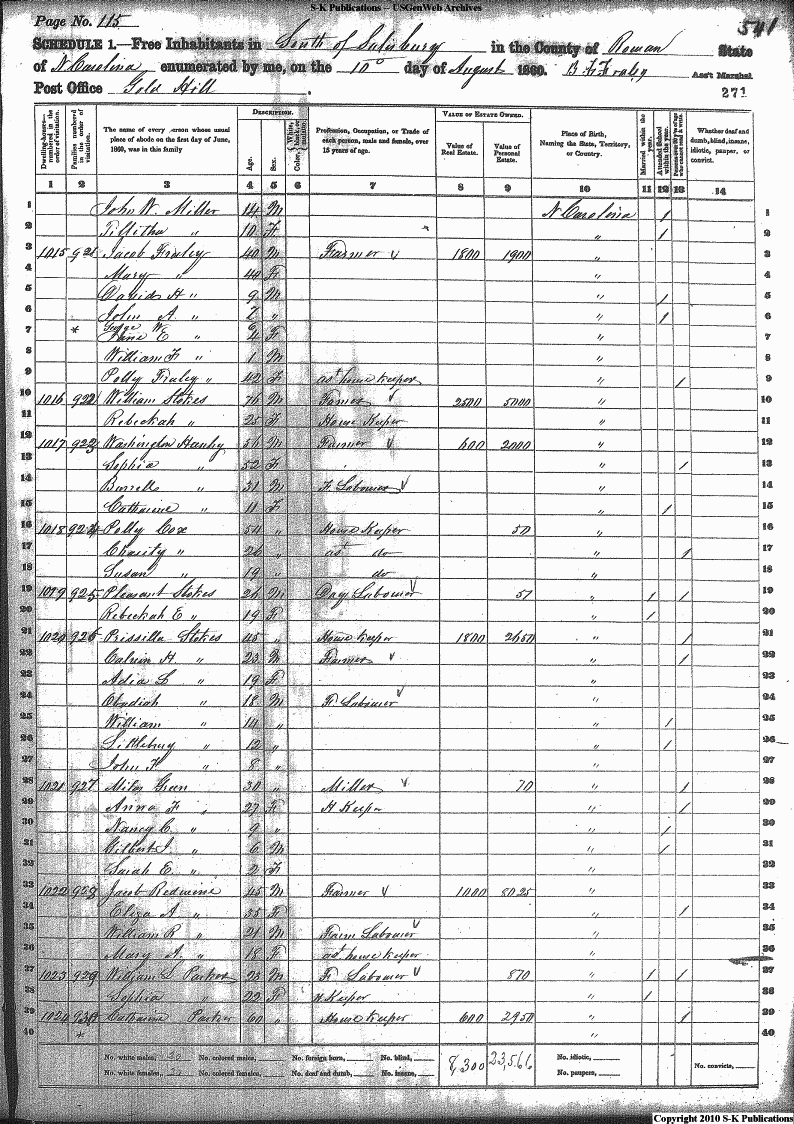 S-K Publications – USGenWeb Archives
Page No. 115
541
SCHEDULE 1.—Free Inhabitants in South of Salisbury in the County of Rowan State
of N Carolina enumerated by me, on the 10 day of August 1860. B F Fraley Ass't Marshal.
Post Office Gold Hill
271
Dwelling-houses—numbered in the order of visitation.
Families numbered in the order of visitation.
The name of every person whose usual place of abode on the first day of June, 1860, was in this family
DESCRIPTION.
Age.
Sex.
Color, White, black, or mulatto.
Profession, Occupation, or Trade of each person, male and female, over 15 years of age.
VALUE OF ESTATE OWNED.
Value of Real Estate.
Value of Personal Estate.
Place of Birth, Naming the State, Territory, or Country.
Married within the year.
Attended School within the year.
Whether deaf and dumb, blind, insane, idiotic, pauper, or convict.
1 2 3 4 5 6 7 8 9 10 11 12 13 14
1 John W. Miller 14 M N Carolina / 1
2 Tilitha " 10 F " / 2
3 1015 921 Jacob Fraley 40 M Farmer 1800 1900 " 3
4 Mary " 44 F " 4
5 David H " 9 M " / 5
6 John A " 7 " " / 6
7 * George W. E " 4 F " 7
8 William F " 1 M " 8
9 Polly Fraley " 42 F ast house keeper " / 9
10 1016 922 William Stokes 76 M Farmer 2500 5000 " 10
11 Rebeckah " 25 F House Keeper " 11
12 1017 923 Washington Hauley 56 M Farmer 600 2000 " 12
13 Sophia " 52 F " / 13
14 Burrell " 31 M F Labourer " 14
15 Catharine " 11 F " / 15
16 1018 924 Polly Cox 54 " House Keeper 50 " 16
17 Charity " 26 " ast do " / 17
18 Susan " 19 " do " 18
19 1019 925 Pleasant Stokes 26 M Day Labourer 57 " / / 19
20 Rebeckah E " 19 F " / 20
21 1020 926 Prissilla Stokes 45 " House Keeper 1800 2650 " / 21
22 Calvin H " 23 M Farmer " / 22
23 Adia L " 19 F " 23
24 Obadiah " 18 M F Labourer " 24
25 William " 14 " " / 25
26 Littlebury " 12 " " / 26
27 John F " 8 " " 27
28 1021 927 Miles Green 30 " Miller 70 " / 28
29 Anna F " 27 F H Keeper " / 29
30 Nancy C. " 9 " " / 30
31 Gilbert J. " 6 M " / 31
32 Sarah E. " 2 F " 32
33 1022 928 Jacob Redwine 45 M Farmer 1000 8025 " 33
34 Eliza A " 35 F " / 34
35 William R " 21 M Farm Labourer " 35
36 Mary A. " 18 F ast house keeper " 36
37 1023 929 William S Parker 23 M F Labourer 870 " / / 37
38 Sophia " 22 F H Keeper " / 38
39 1024 930 Catharine Parker 60 " House keeper 600 2950 " / 39
40 * " 40
No. white males, 20 No. colored males, No. foreign born, No. blind, 8,300 23,566 No. idiotic,
No. white females, No. colored females, No. deaf and dumb, No. insane, No. paupers, No. convicts,
Copyright 2010 S-K Publications